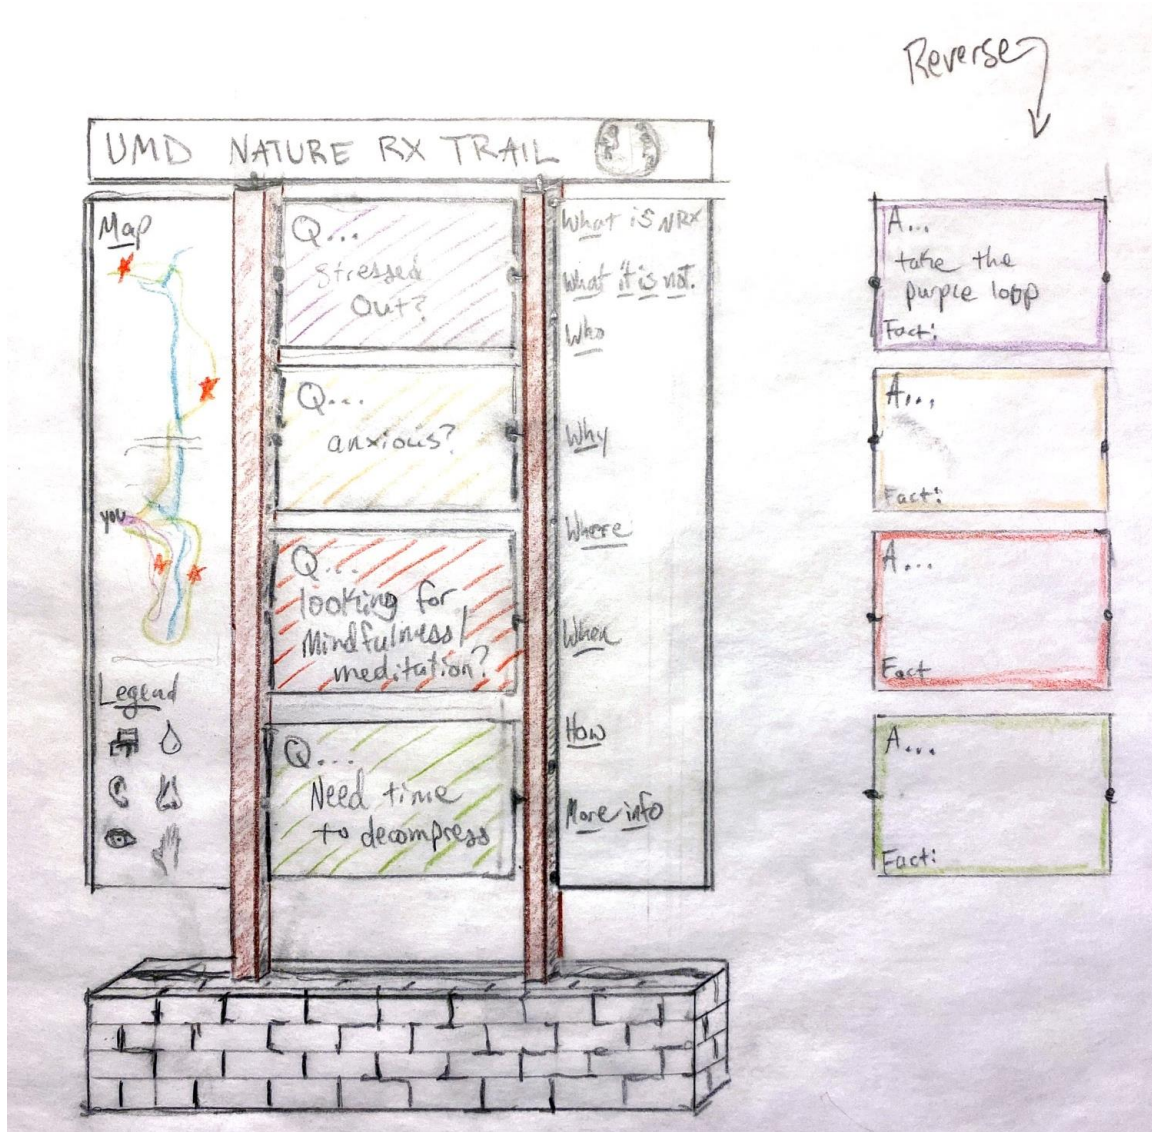 Reverse
UMD NATURE RX TRAIL
Map
you
Legend
Q...
Stressed
Out?
Q...
anxious?
Q...
looking for
Mindfulness/
meditation?
Q...
Need time
to decompress
What is NRX
What it is not.
Who
Why
Where
When
How
More info
A...
take the
purple loop
Fact:
A...
Fact:
A...
Fact
A...
Fact: